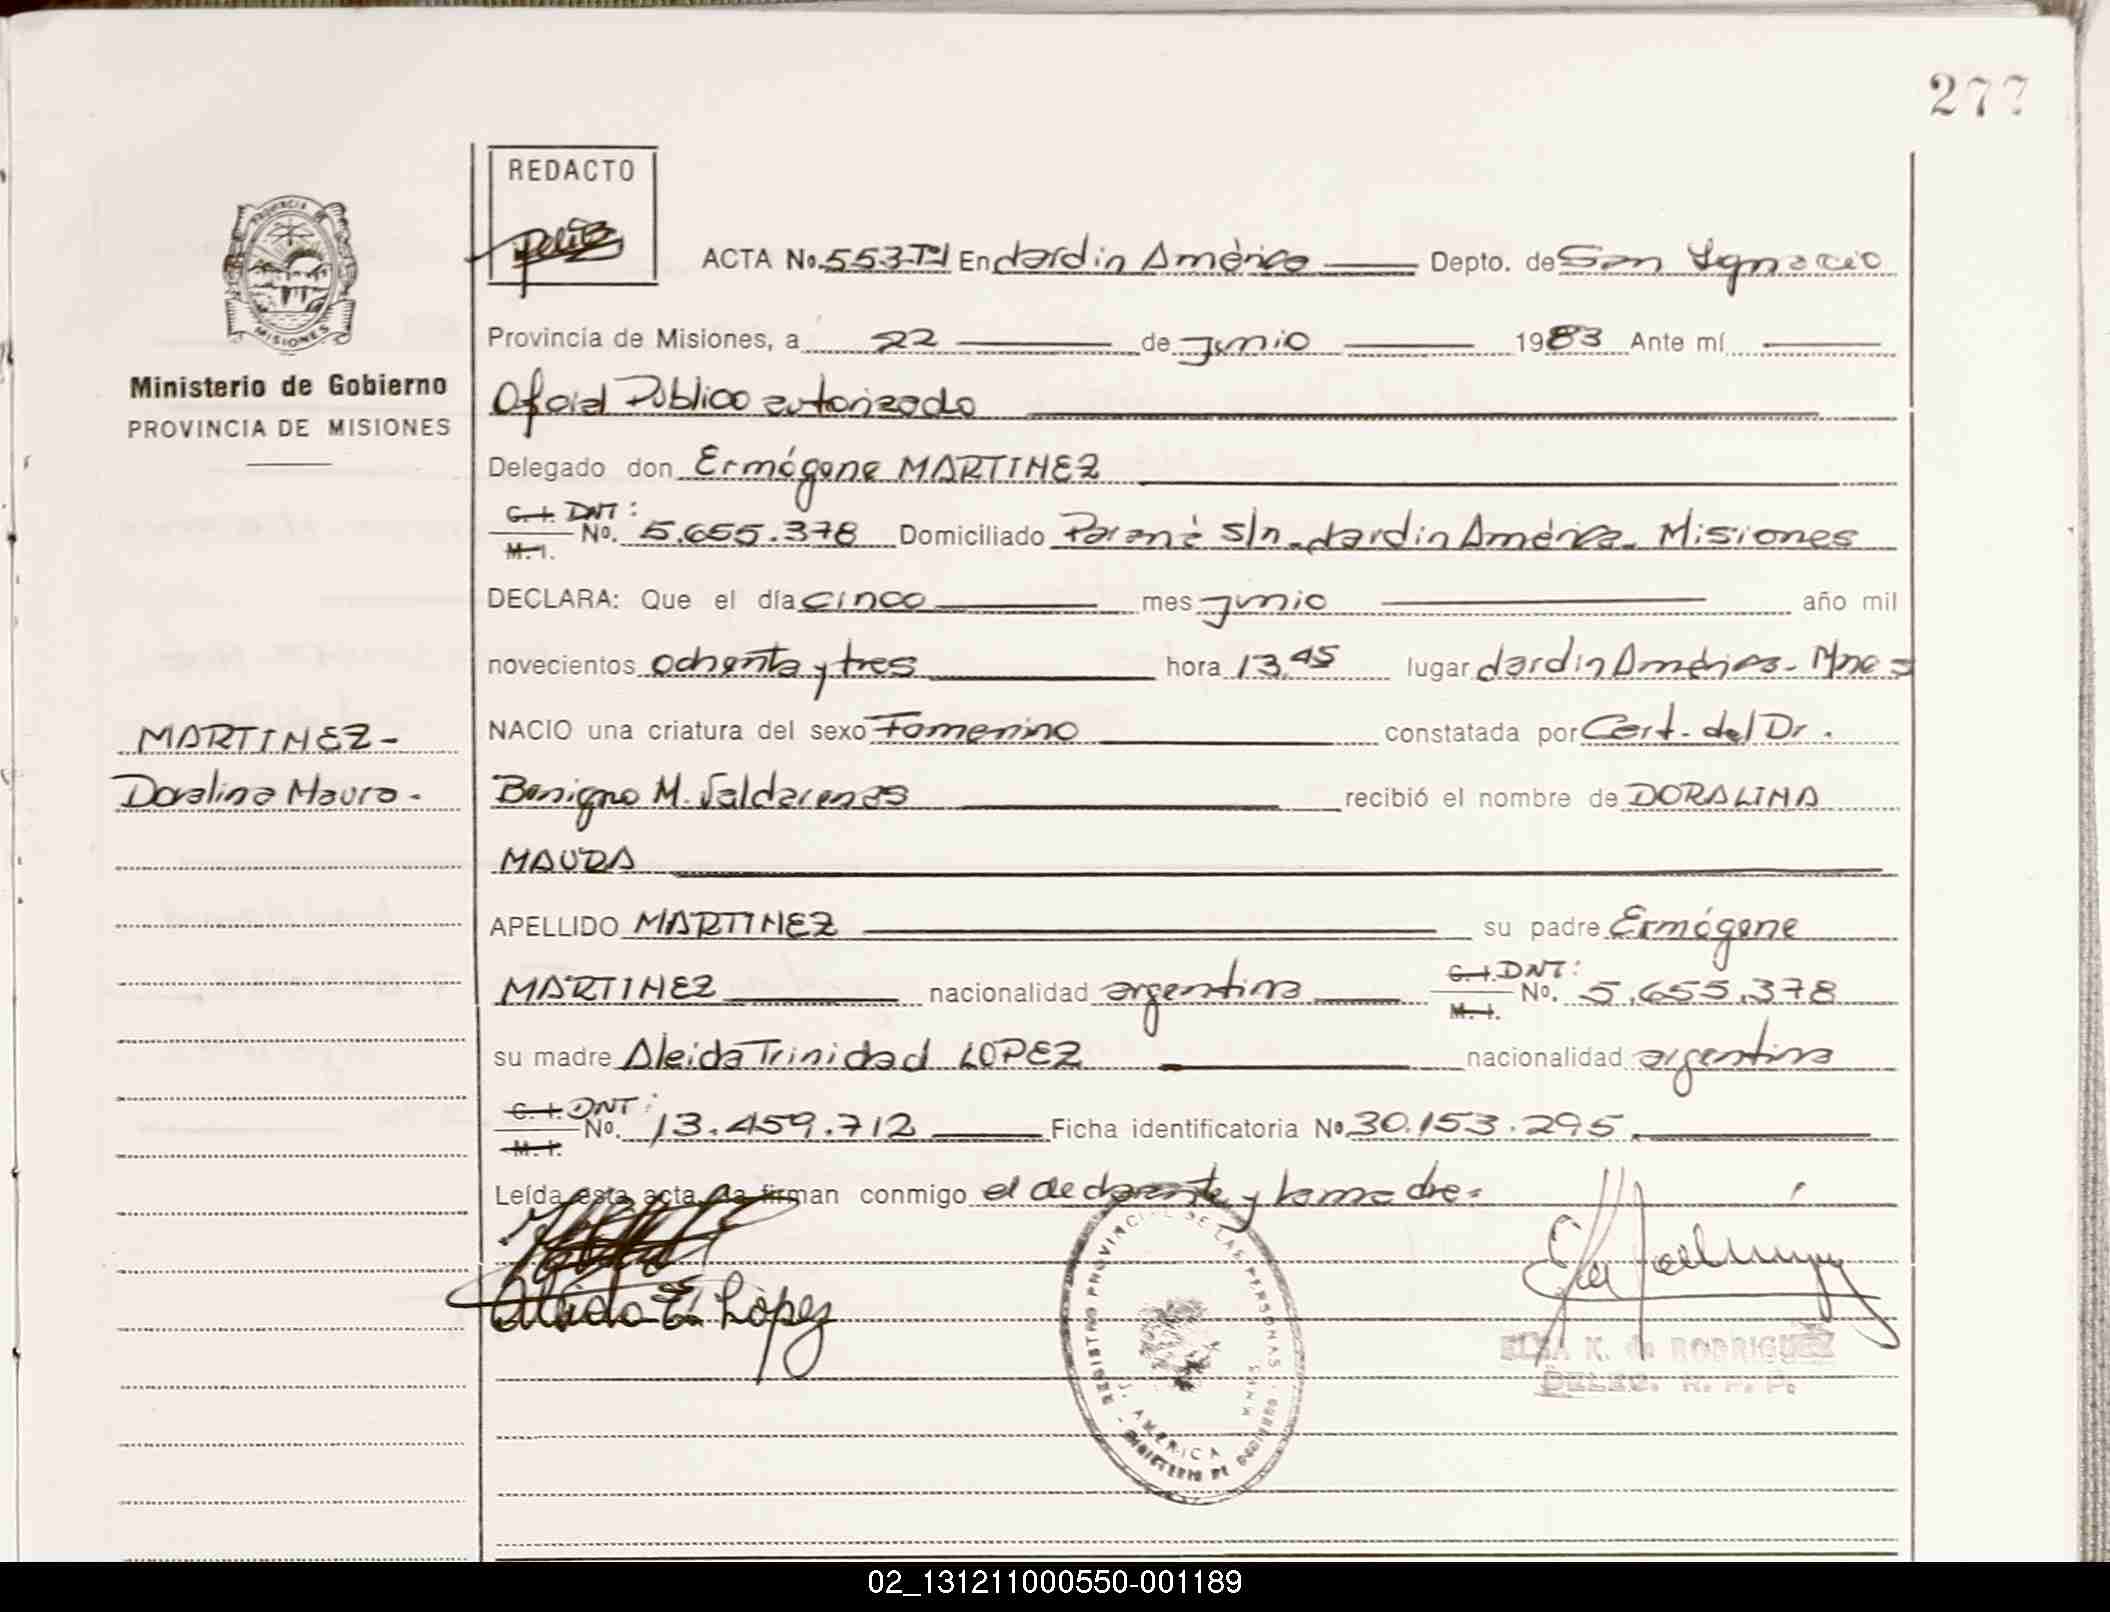 277
REDACTO
ACTA No. 553-Tº1 En Jardin América Depto. de San Ignacio
PROVINCIA DE
MISIONES
Ministerio de Gobierno
PROVINCIA DE MISIONES
Provincia de Misiones, a 22 de junio 1983 Ante mí
Oficial Público autorizado
Delegado don Ermógene MARTINEZ
C. I. DNI: No. 5.655.378 Domiciliado Paraná s/n. Jardin América. Misiones
M. I.
DECLARA: Que el día cinco mes junio año mil
novecientos ochenta y tres hora 13,45 lugar Jardin América. Mnes
MARTINEZ-
Doralina Maura.
NACIO una criatura del sexo Femenino constatada por Cert. del Dr.
Benigno M. Valdarenas recibió el nombre de DORALINA
MAURA
APELLIDO MARTINEZ su padre Ermógene
MARTINEZ nacionalidad argentina C. I. DNI: No. 5.655.378
M. I.
su madre Aleida Trinidad LOPEZ nacionalidad argentina
C. I. DNI: No. 13.459.712 Ficha identificatoria No 30.153.295
M. I.
Leída esta acta la firman conmigo el declarante y la madre.
Aleida E. Lòpez
REGISTRO PROVINCIAL DE LAS PERSONAS
J. AMERICA
MINISTERIO DE GOBIERNO
ELSA K. de RODRIGUEZ
DELEG. R. P. P.
02_131211000550-001189